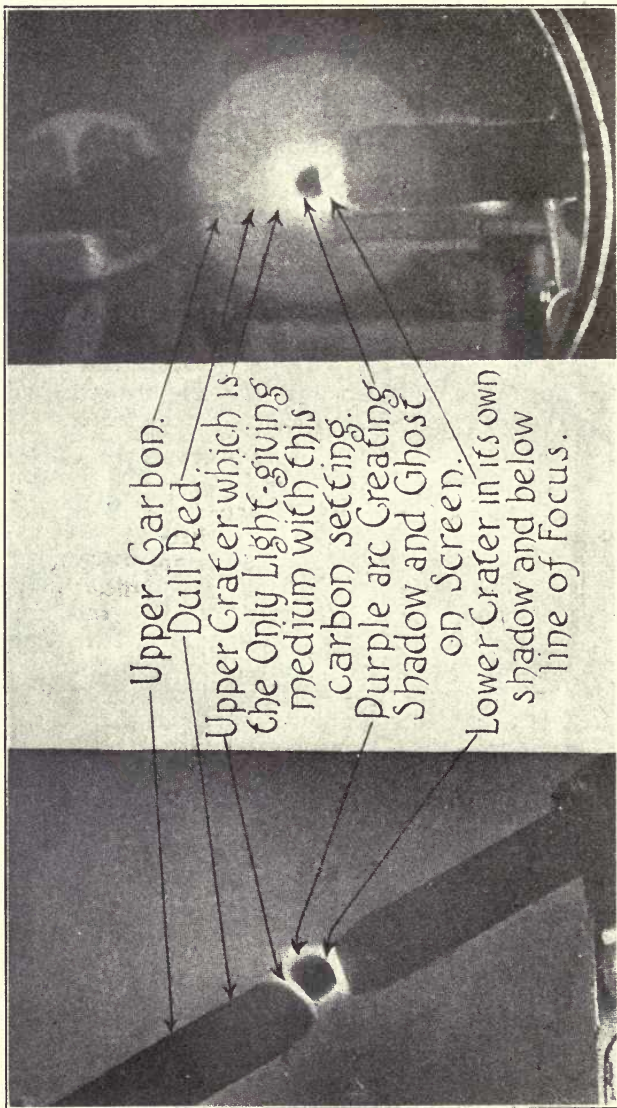 Upper Carbon.
Dull Red.
Upper Crater which is
the Only Light-giving
medium with this
carbon setting.
Purple arc Creating
Shadow and Ghost
on Screen.
Lower Crater in its own
shadow and below
line of Focus.